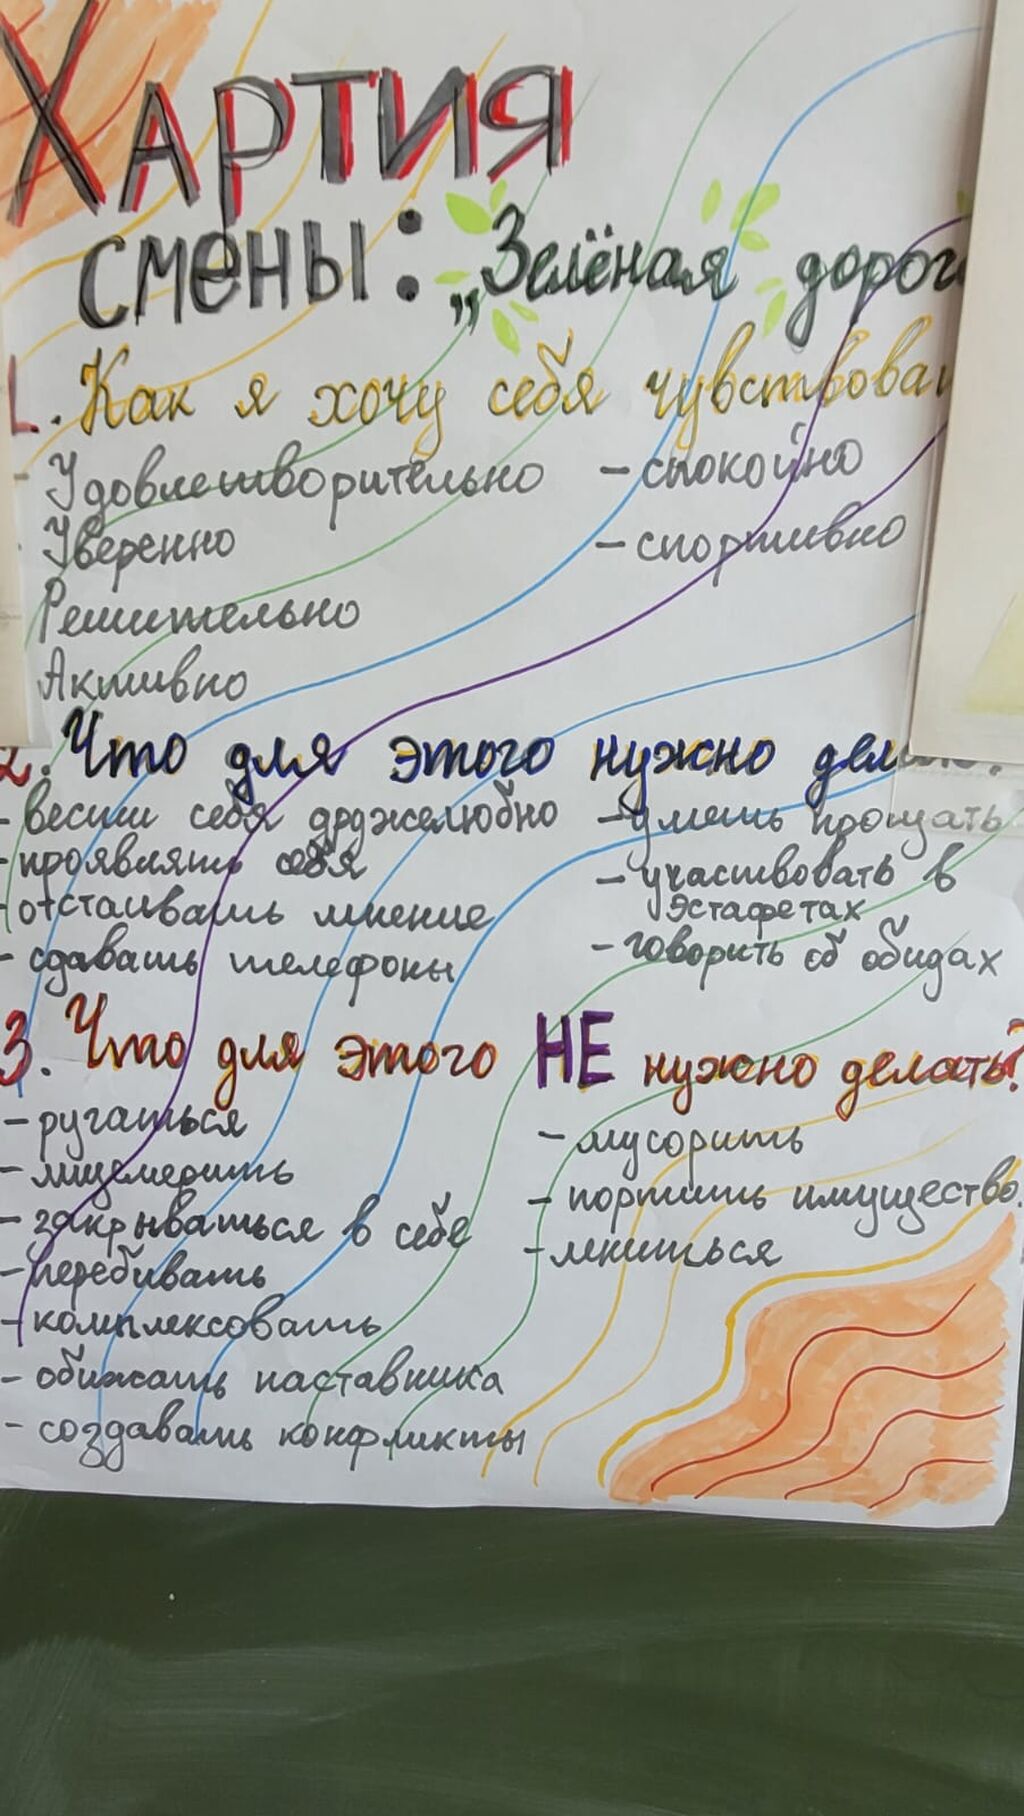 Хартия
смены:
„Зелёная дорог
1. Как я хочу себя чувствоват
- Удовлетворительно
Уверенно
Решительно
Активно
- спокойно
- спортивно
2. Что для этого нужно делать?
- вести себя дружелюбно
- проявлять себя
- отстаивать мнение
- сдавать телефоны
- уметь прощать
- участвовать в
эстафетах
- говорить об обидах
3. Что для этого НЕ нужно делать?
- ругаться
- лицемерить
- закрываться в себе
- перебивать
- комплексовать
- обижать наставника
- создавать конфликты
- мусорить
- портить имущество.
- лениться